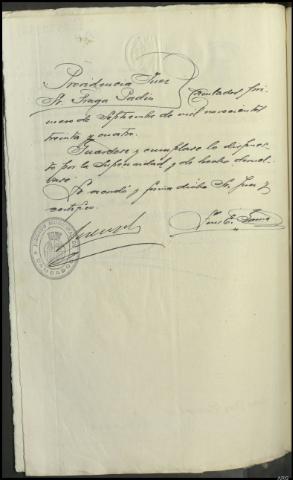 Providencia Juez
Sr. Fraga Padín } Cambados, pri-
mero de Septiembre de mil novecientos
treinta y cuatro.
Guardese y cumplase lo dispues-
to por la Superioridad y de hecho devuel-
vase.
Lo mandó y firma dicho Sr. Juez y
certifico.
CAMBADOS